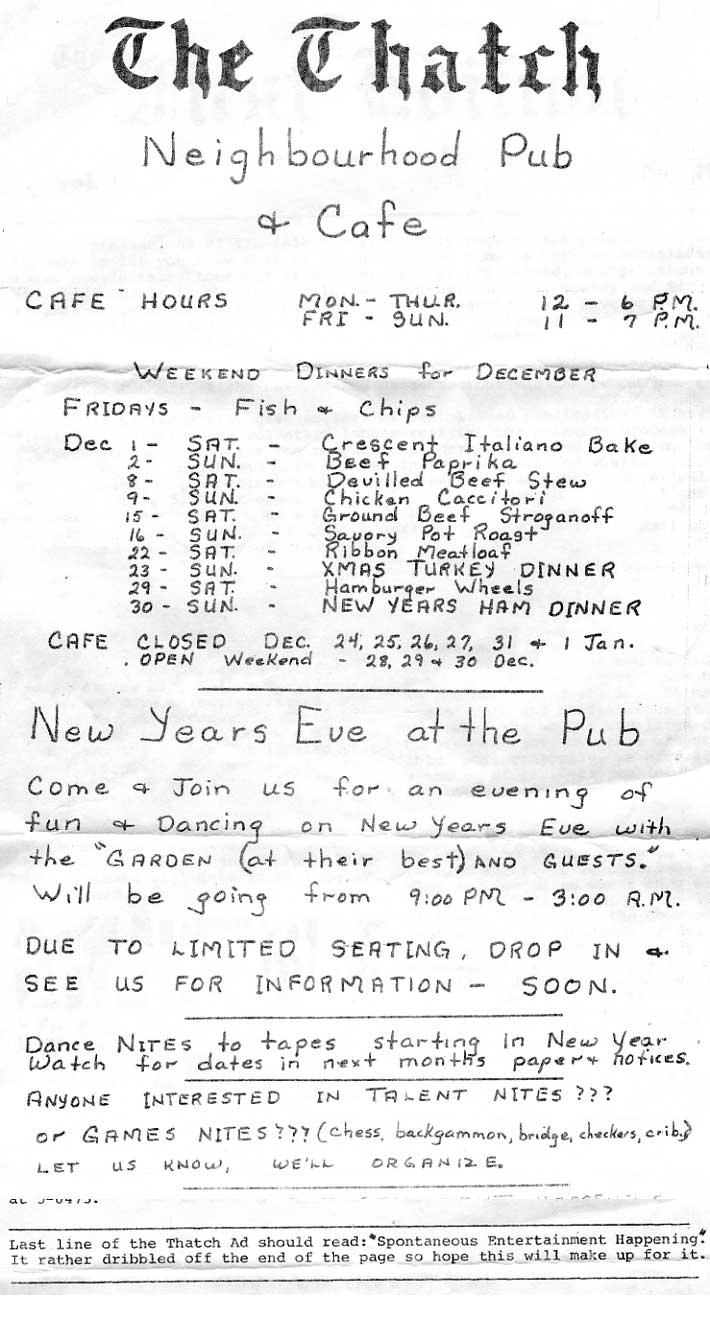 The Thatch
Neighbourhood Pub
& Cafe
CAFE HOURS MON. - THUR. 12 - 6 P.M.
FRI - SUN. 11 - 7 P.M.
WEEKEND DINNERS for DECEMBER
FRIDAYS - Fish & Chips
Dec 1 - SAT. - Crescent Italiano Bake
2 - SUN. - Beef Paprika
8 - SAT. - Devilled Beef Stew
9 - SUN. - Chicken Caccitori
15 - SAT. - Ground Beef Stroganoff
16 - SUN. - Savory Pot Roast
22 - SAT. - Ribbon Meatloaf
23 - SUN. - XMAS TURKEY DINNER
29 - SAT. - Hamburger Wheels
30 - SUN. - NEW YEARS HAM DINNER
CAFE CLOSED DEC. 24, 25, 26, 27, 31 & 1 Jan.
. OPEN Weekend - 28, 29 & 30 Dec.
New Years Eve at the Pub
Come & Join us for an evening of
fun & Dancing on New Years Eve with
the "GARDEN (at their best) AND GUESTS."
Will be going from 9:00 PM - 3:00 A.M.
DUE TO LIMITED SEATING, DROP IN &
SEE US FOR INFORMATION - SOON.
Dance NITES to tapes starting in New Year
Watch for dates in next months paper & notices.
ANYONE INTERESTED IN TALENT NITES ???
or GAMES NITES ??? (chess, backgammon, bridge, checkers, crib.)
LET US KNOW, WE'LL ORGANIZE.
Last line of the Thatch Ad should read: "Spontaneous Entertainment Happening".
It rather dribbled off the end of the page so hope this will make up for it.